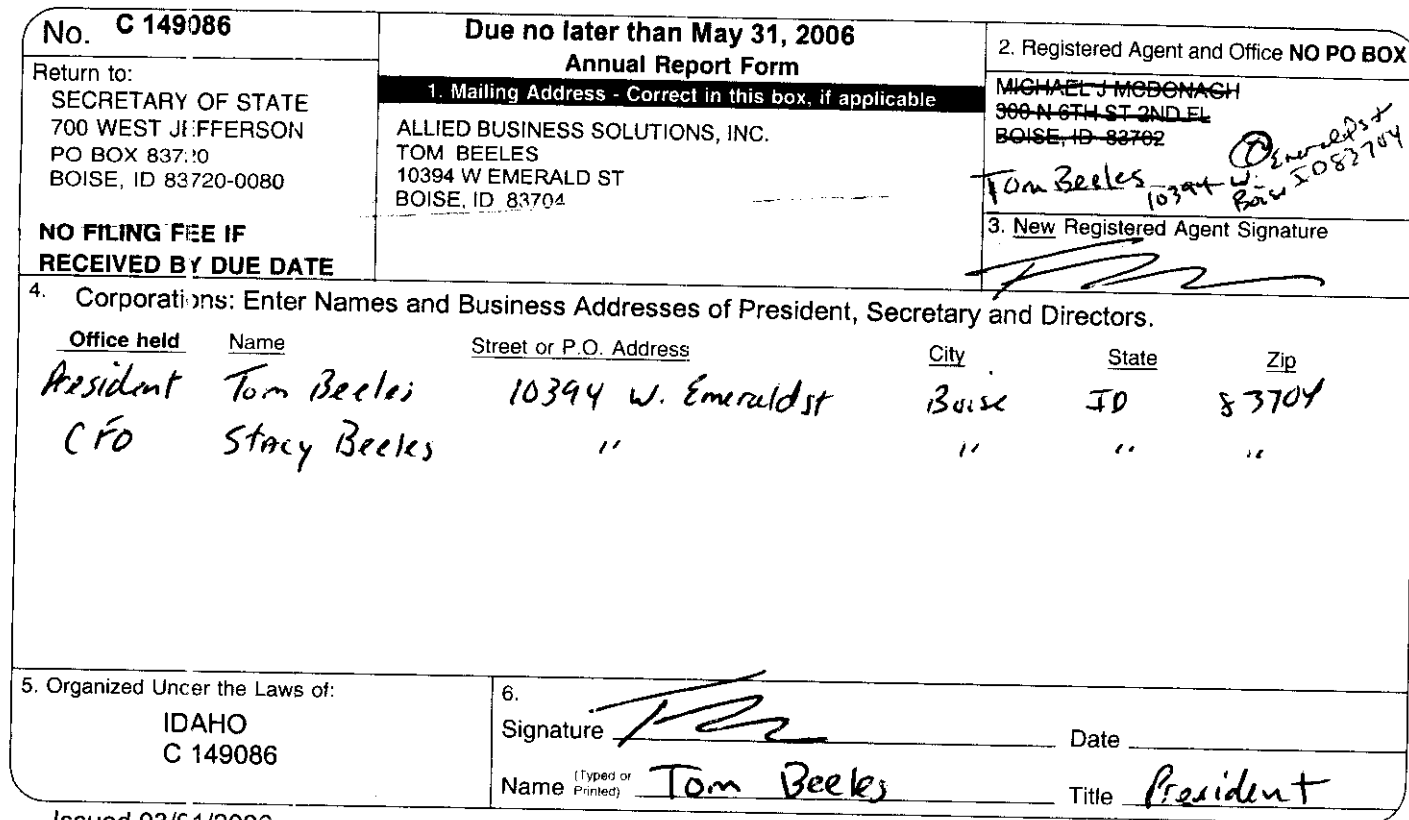 No. C 149086
Return to:
SECRETARY OF STATE
700 WEST JEFFERSON
PO BOX 83720
BOISE, ID 83720-0080
NO FILING FEE IF
RECEIVED BY DUE DATE
Due no later than May 31, 2006
Annual Report Form
1. Mailing Address - Correct in this box, if applicable
ALLIED BUSINESS SOLUTIONS, INC.
TOM BEELES
10394 W EMERALD ST
BOISE, ID 83704
2. Registered Agent and Office NO PO BOX
MICHAEL J MCDONAGH
300 N 6TH ST 2ND FL
BOISE, ID 83702
Tom Beeles 10394 W. Emerald St
Boise ID 83704
3. New Registered Agent Signature
4. Corporations: Enter Names and Business Addresses of President, Secretary and Directors.
Office held Name Street or P.O. Address City State Zip
President Tom Beeles 10394 W. Emerald st Boise ID 83704
CFO Stacy Beeles " " " "
5. Organized Under the Laws of:
IDAHO
C 149086
6.
Signature Date
Name (Typed or Printed) Tom Beeles Title President